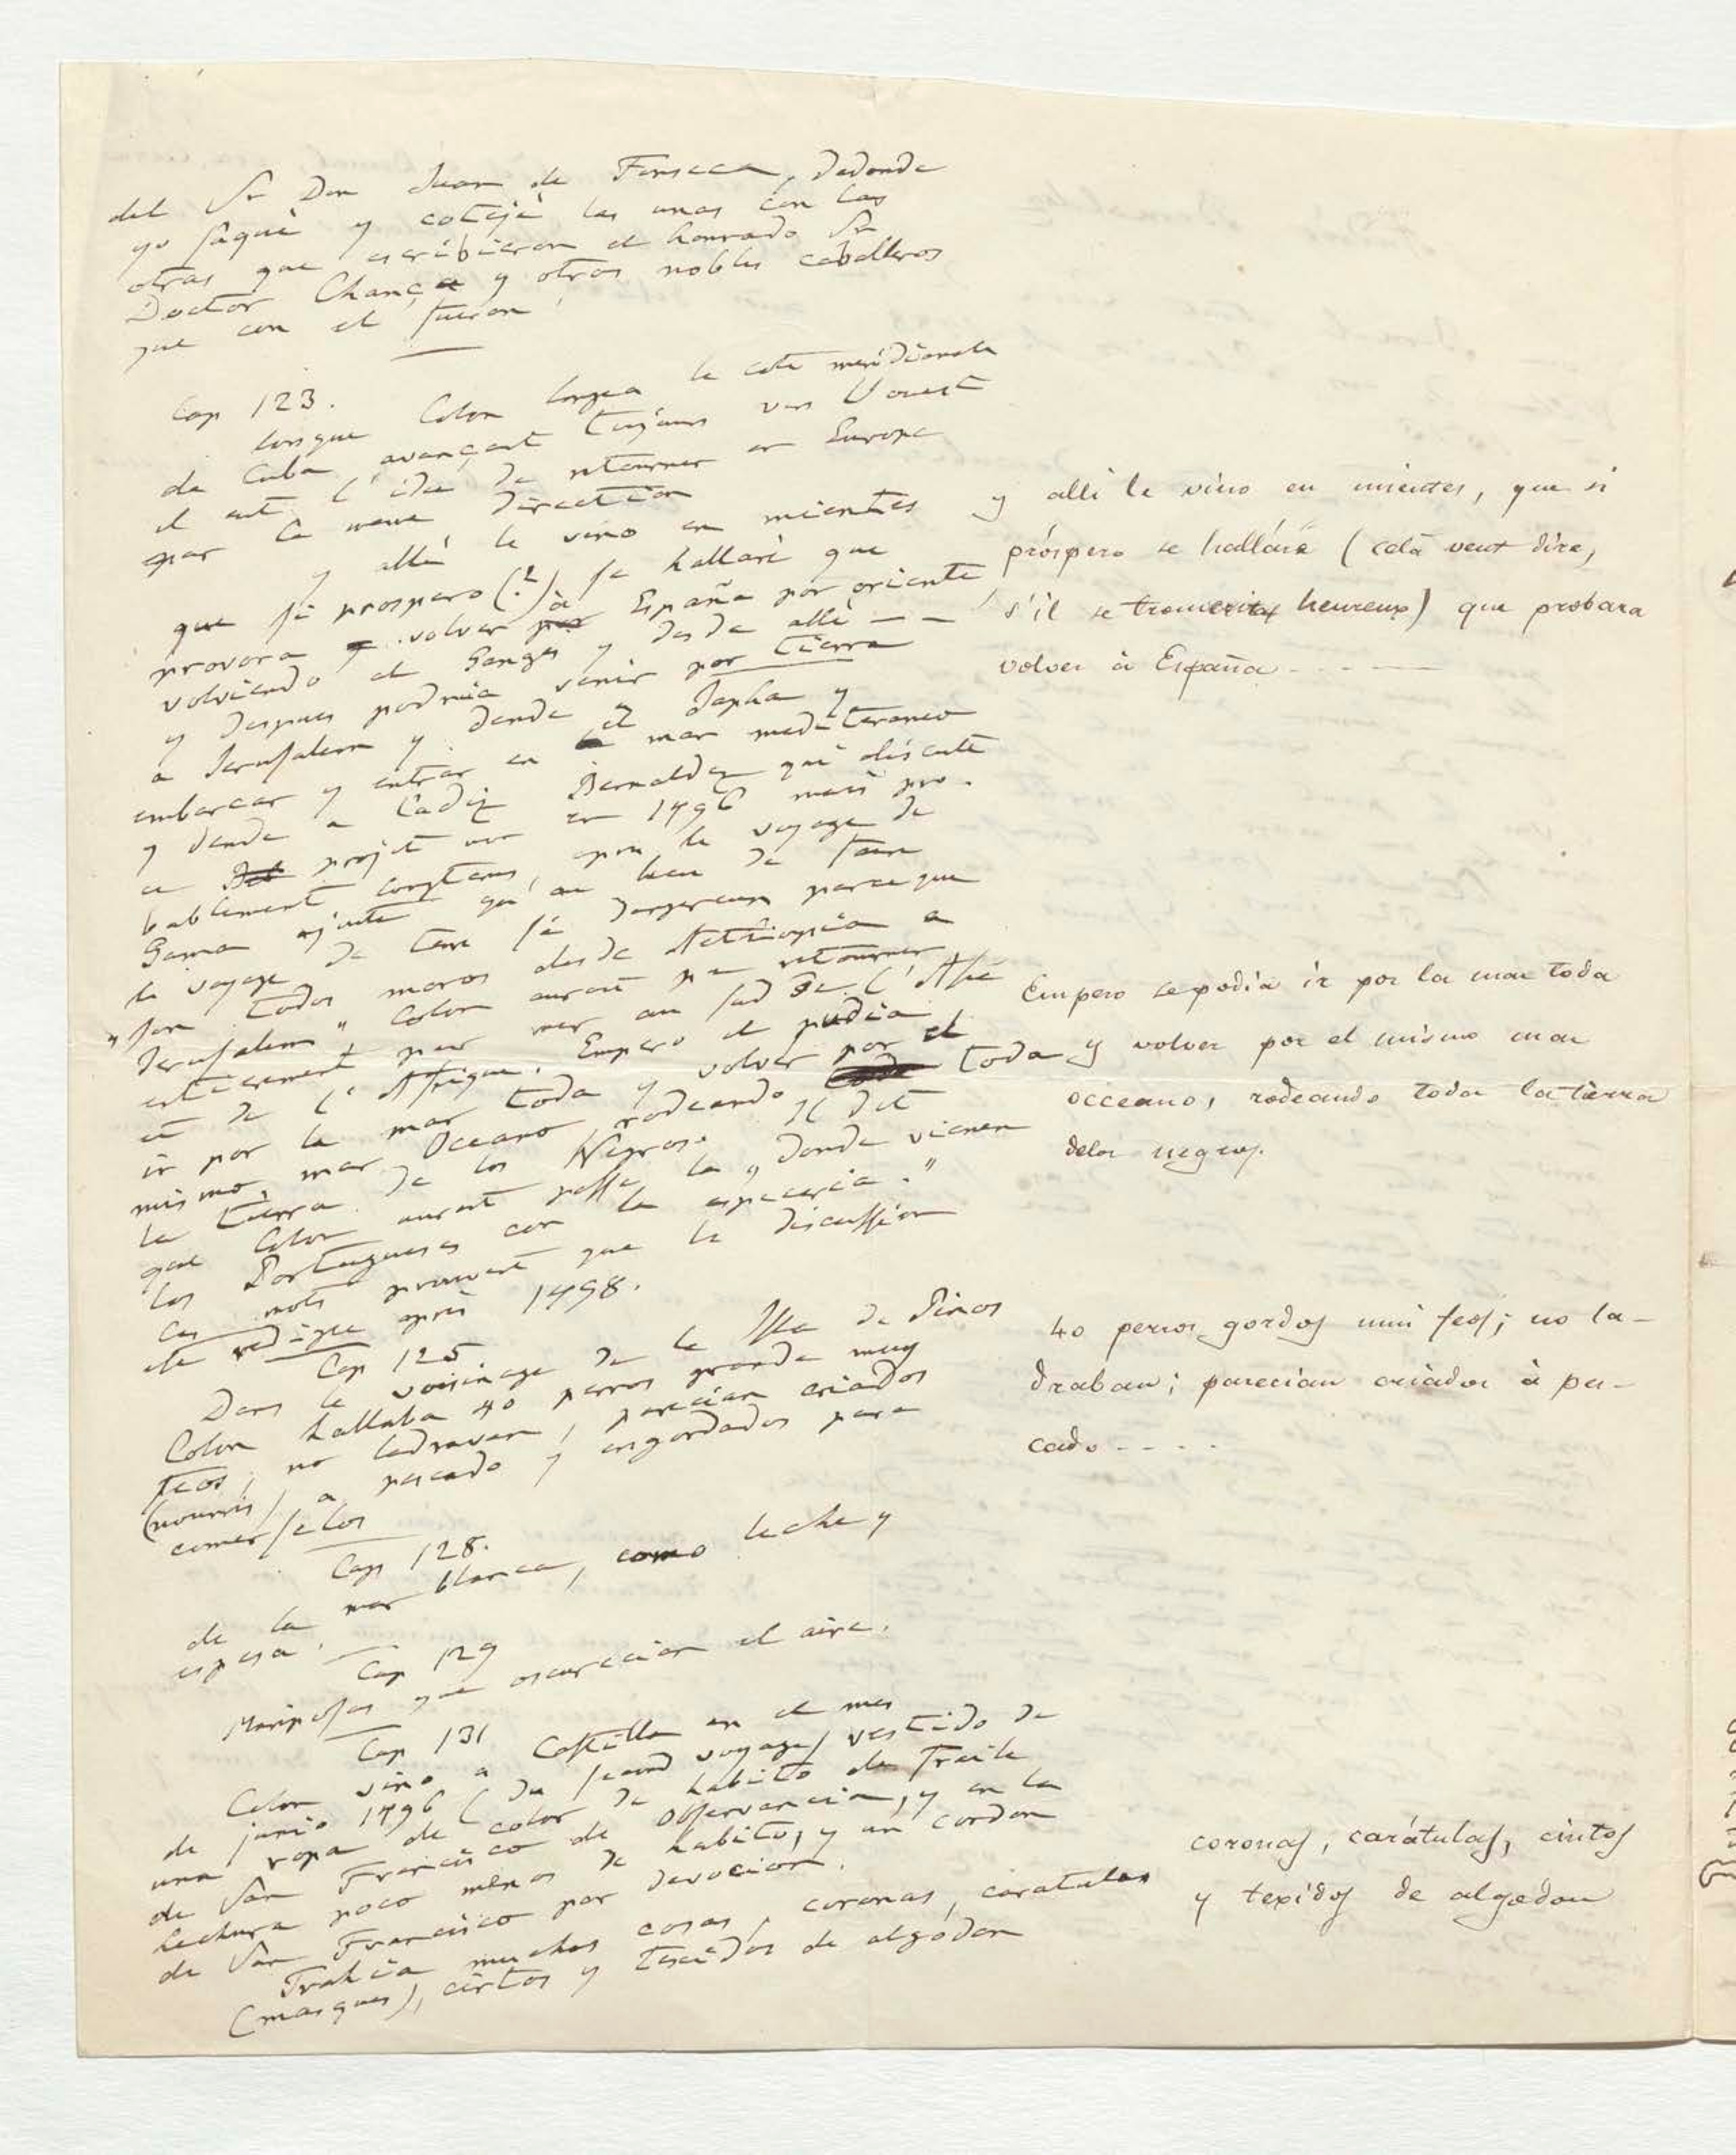 del Sr Don Juan de Fonseca, dedonde
yo saqué y cotejé las unas con las
otras que escribieron el honrado Sr
Doctor Chanca y otros nobles caballeros
que con el fueron
Cap 123.
lorsque Colon longea la cote meridionale
de Cuba avançant toujours vers l'ouest
il eut l'idée de retourner en Europe
par la meme direction
y alli le vino en mientes
que si prospero (?) se hallare que
provora volver à España por oriente
volviendo el Ganges y desde alli — —
y despues podria venir por tierra
a Jerusalem y dende a Japha y
embarcar y entrar en el mar mediterraneo
y dende a Cadiz Bernaldez qui discute
ce projet en 1496 mais pro-
bablement longtems apres le voyage de
Gama ajoute qu'au lieu de faire
le voyage de terre si dangereux parceque
"son todos moros desde Aethiopia a
Jerusalem" Colon aurait pu retourner
entierement par mer au sud de l'Asie
et de l'Afrique. Empero el pudia
ir por la mar toda y volver por el
mismo mar Oceano, rodeando toda
la tierra de los Negros. Il dit
que Colon aurait passé la "donde vienen
los Portugueses con la especeria."
Ces mots prouvent que la discussion
été redigée apres 1498.
Cap 125
Dans le voisinage de la Isla de Pinos
Colon hallaba 40 perros grande muy
feos, no ladravan, parecian criados
(nourris) a pescado y engordados para
comerselos
Cap 128.
de la mar blanca, como leche y
espesa.
Cap 129
Mariposas que oscurecian el aire.
Cap 131
Colon vino a Castilla en el mes
de junio 1496 (du second voyage) vestido de
una ropa de color de habito de fraile
de San Francisco de Observancia, y en la
hechura poco menos de habito, y un cordon
de San Francisco por devocion.
Trahia muchas cosas, coronas, caratulas
(masques), cintos y texidos de algodon
y alli le vino en mientes, que si
próspero se hallára (celà veut dire,
s'il se trouverait heureux) que probara
volver à España - - - —
Empero se podia ir por la mar toda
y volver por el mismo mar
occeano, rodeando toda la tierra
delos negros.
40 perros gordos mui feos; no la-
draban; parecian criados à pes-
cado - - - -
coronas, carátulas, cintos
y texidos de algodon